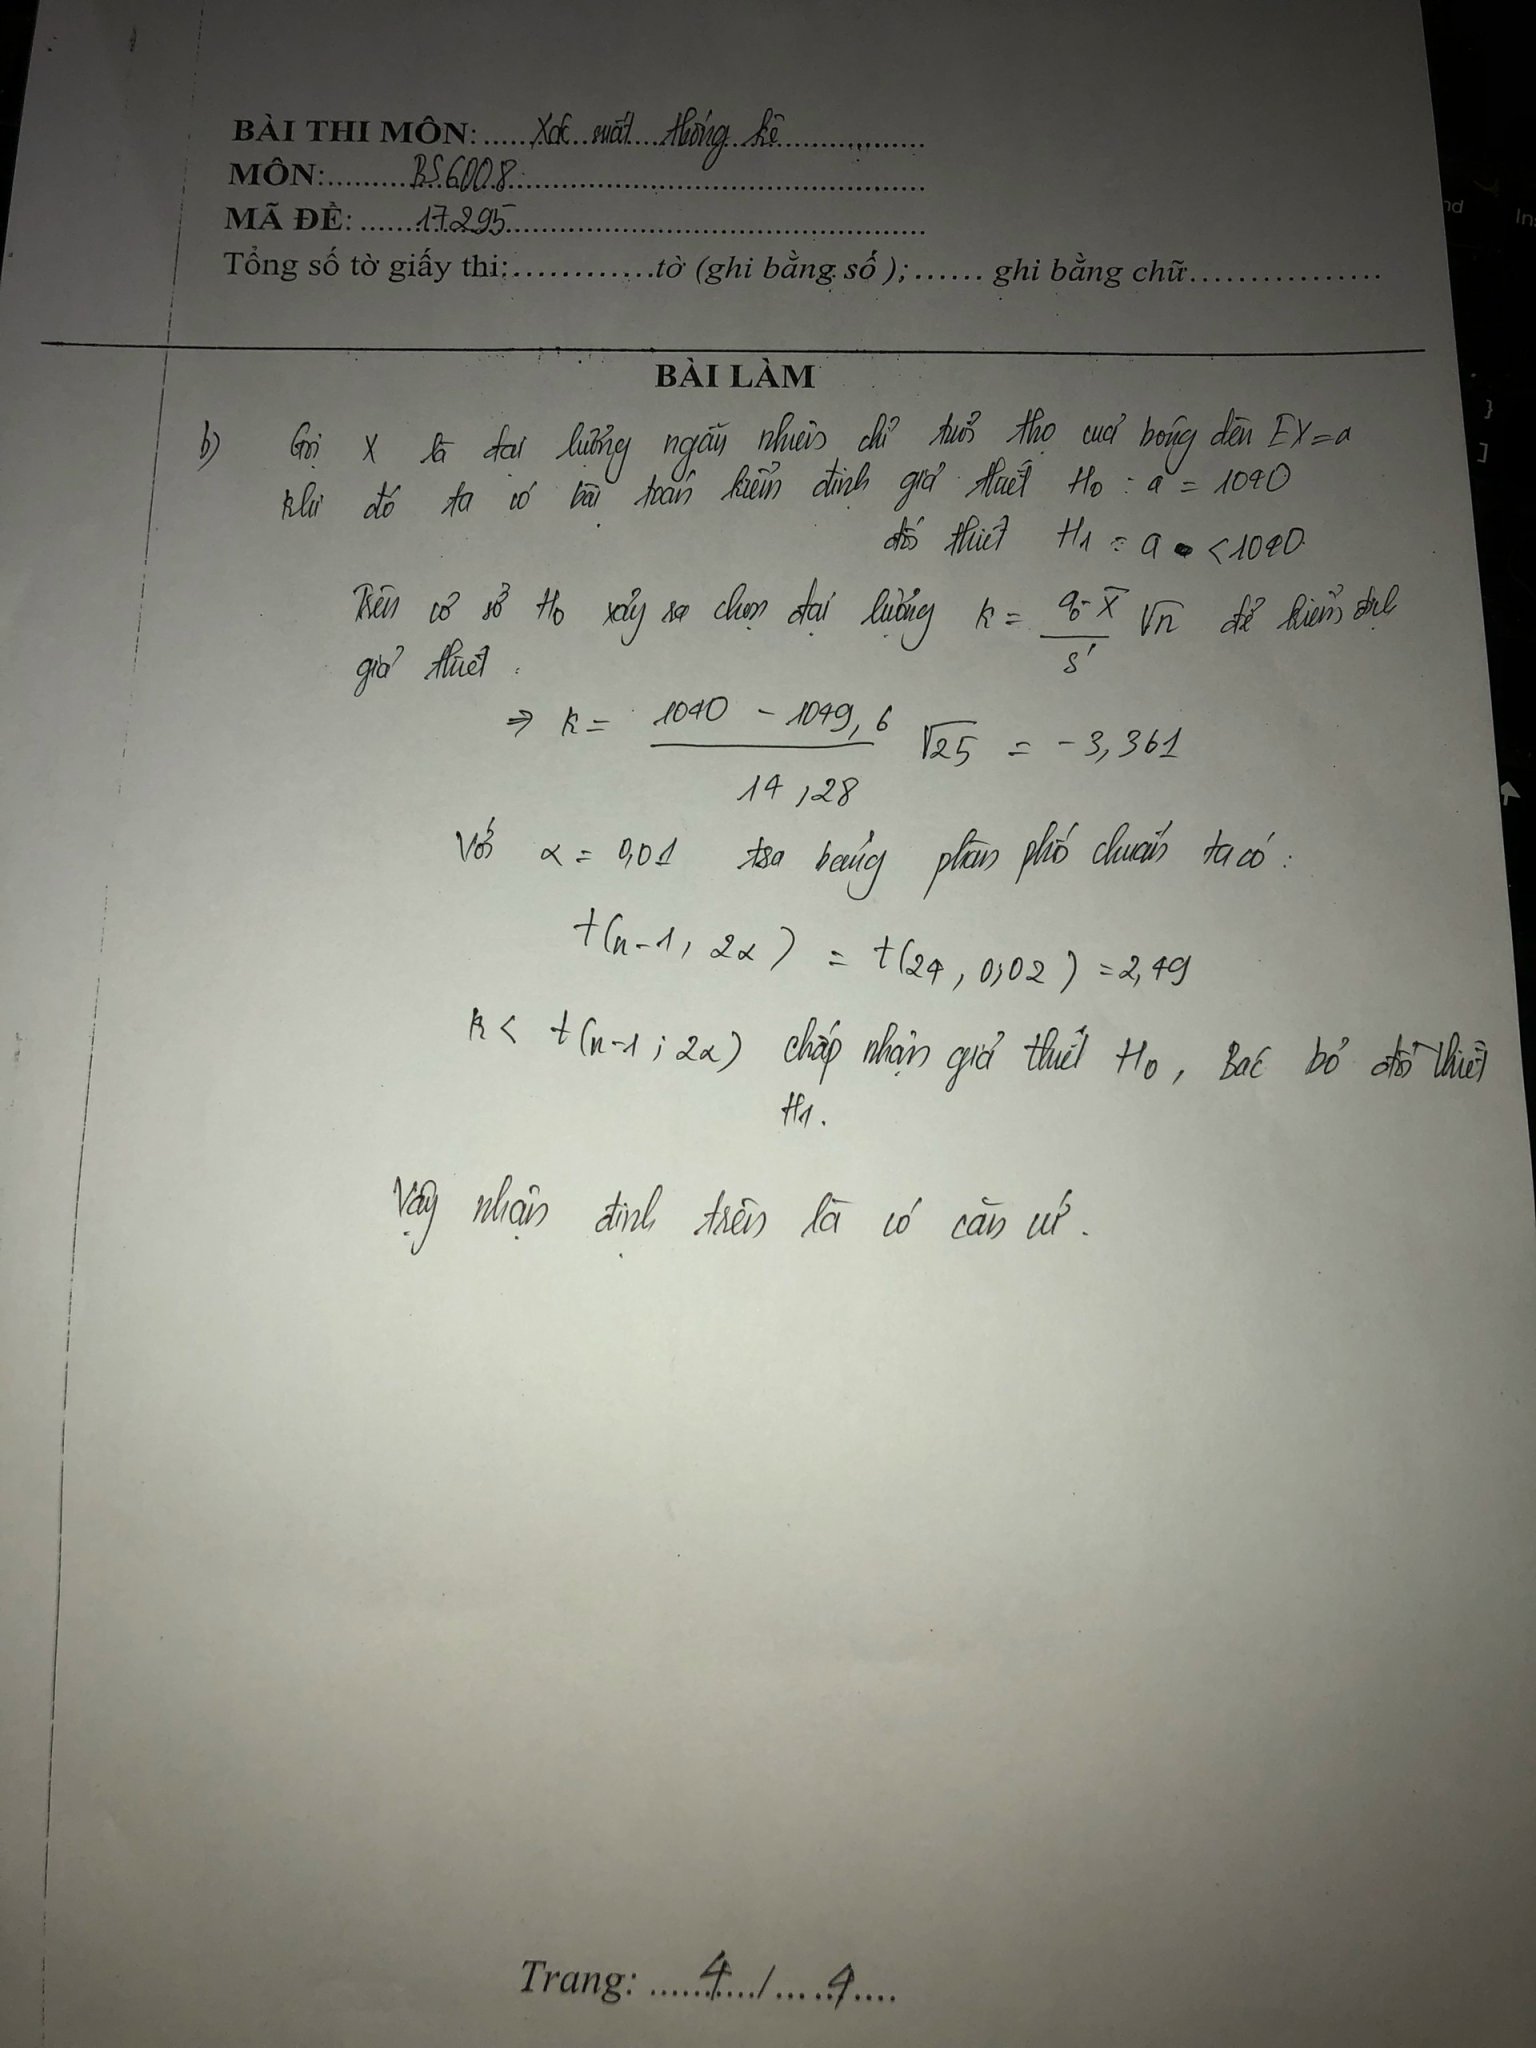 BÀI THI MÔN: ......Xác suất thống kê..................
MÔN:.........BS6008...............................
MÃ ĐỀ: ......17295...............................
Tổng số tờ giấy thi:.............tờ (ghi bằng số );...... ghi bằng chữ.................
nd
In
BÀI LÀM
}
]
b) Gọi X là đại lượng ngẫu nhiên chỉ tuổi thọ của bóng đèn EX=a
Khi đó ta có bài toán kiểm định giả thiết H₀ : a = 1040
đối thiết H₁ : a < 1040
Trên cơ sở H₀ xảy ra chọn đại lượng k = (a₀ - X̄)/s' √n để kiểm định
giả thiết .
⇒ k = (1040 - 1049,6)/14,28 √25 = -3,361
Với α = 0,01 tra bảng phân phối chuẩn ta có :
t(n-1, 2α) = t(24, 0,02) = 2,49
k < t(n-1; 2α) chấp nhận giả thiết H₀, Bác bỏ đối thiết
H₁.
Vậy nhận định trên là có căn cứ.
Trang: ......4..../......4.....